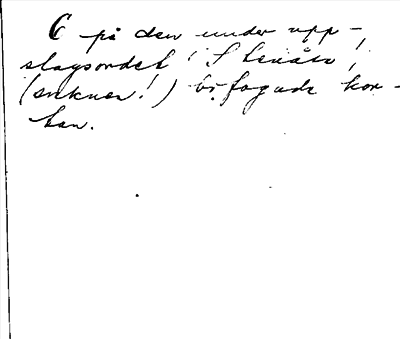 C på den under upp-
slagsordet
(saknas!) bifogade kor-
tan.